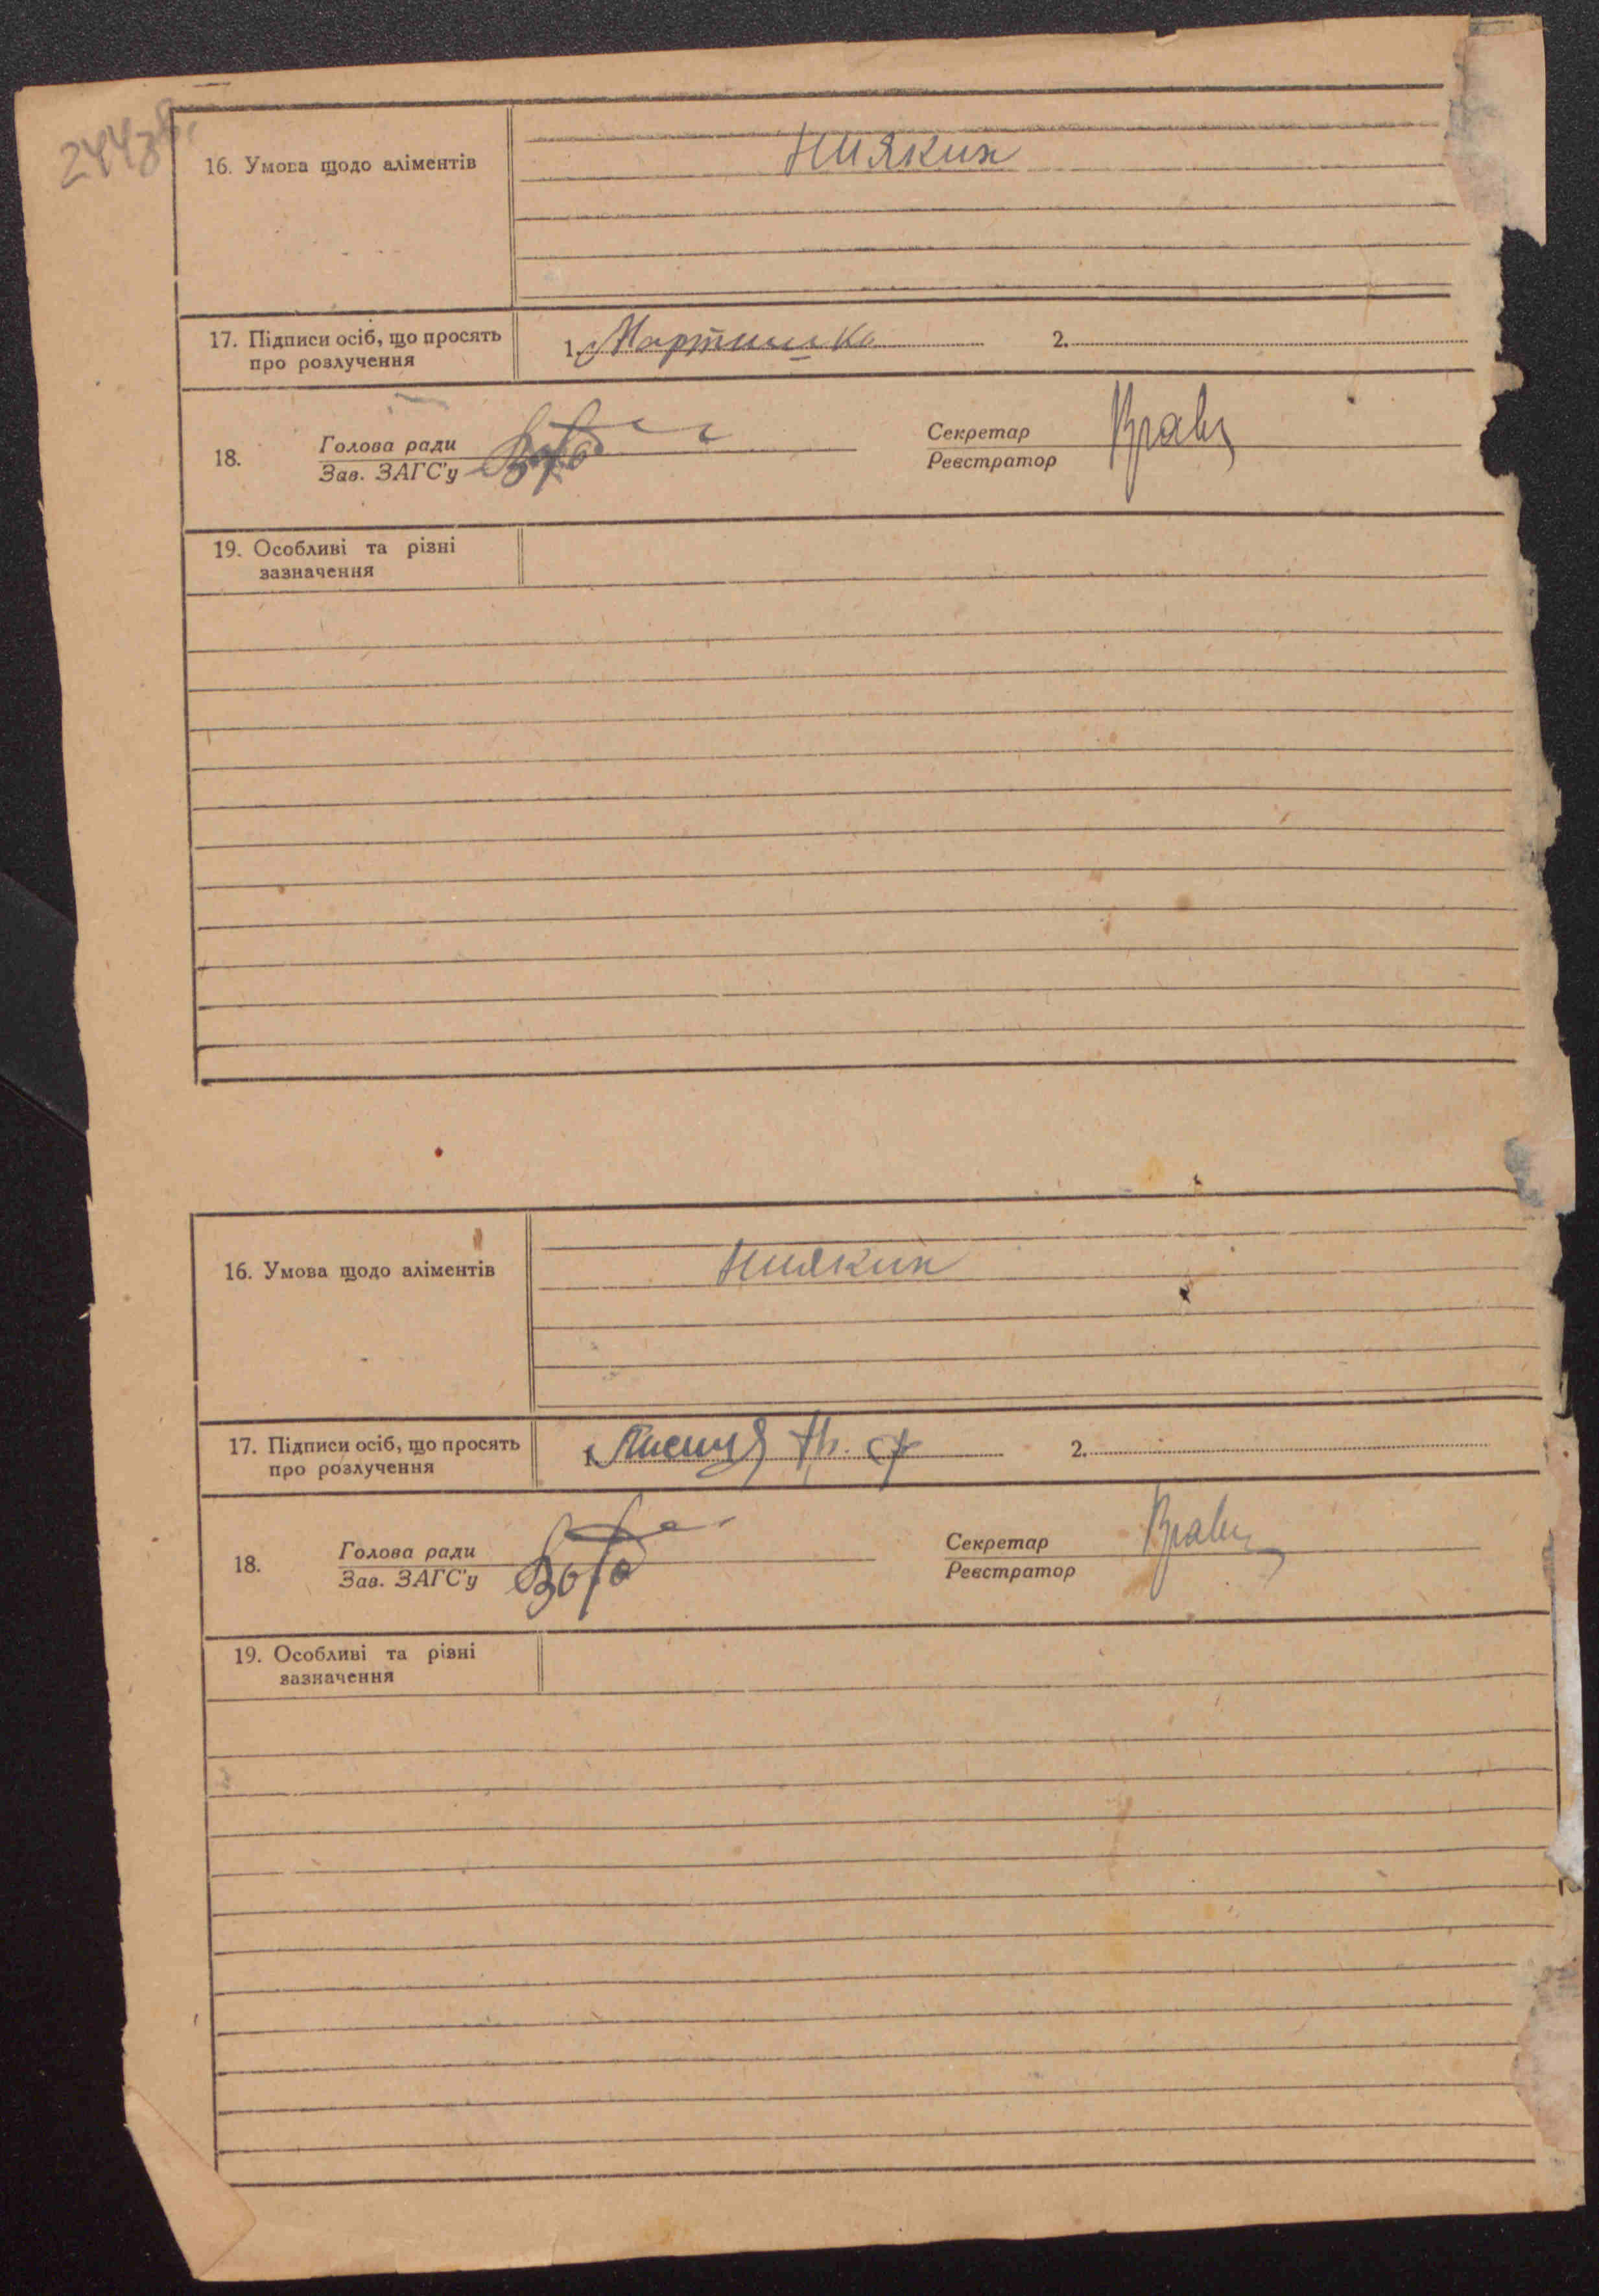 16. Умова щодо аліментів
Нияких
17. Підписи осіб, що просять
про розлучення
1.
2.
18.
Голова ради
Зав. ЗАГС'у
Секретар
Реєстратор
19. Особливі та різні
зазначення
16. Умова щодо аліментів
Нияких
17. Підписи осіб, що просять
про розлучення
1.
2.
18.
Голова ради
Зав. ЗАГС'у
Секретар
Реєстратор
19. Особливі та різні
зазначення